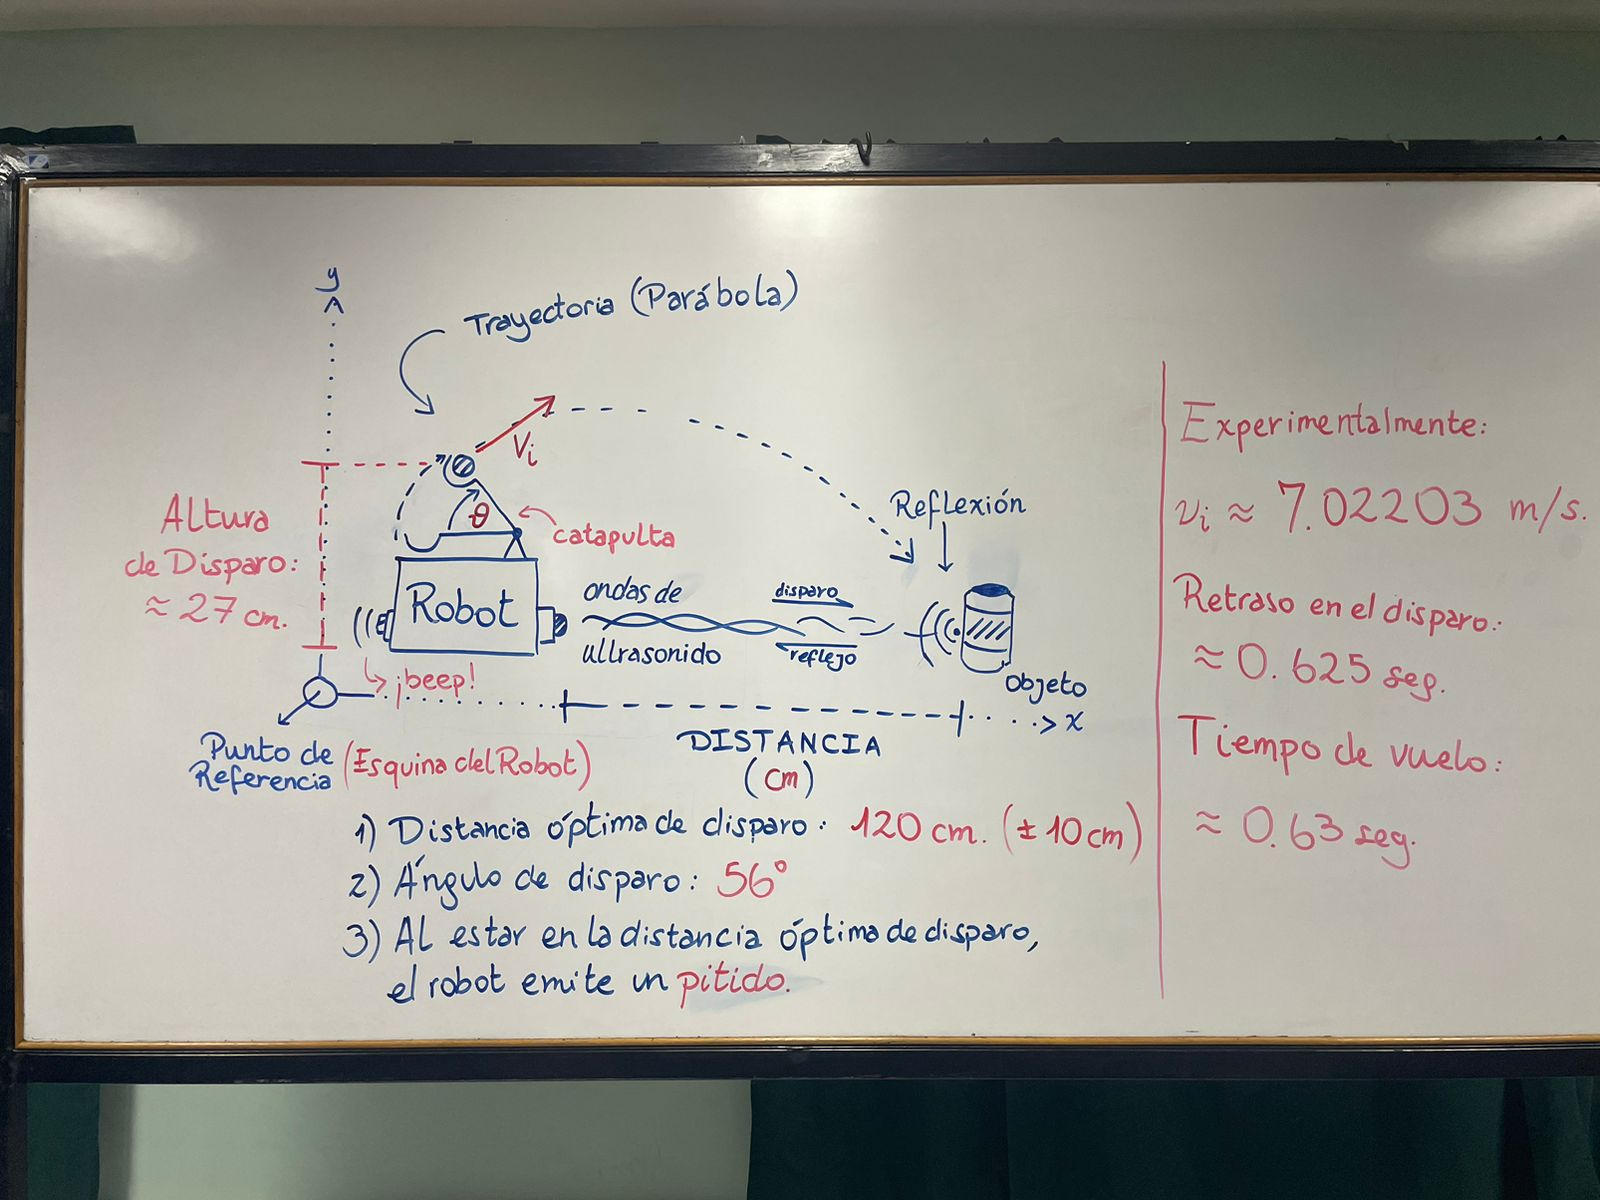 y
Trayectoria (Parábola)
Vi
Altura
de Disparo:
≈ 27 cm.
θ
catapulta
Robot
¡beep!
ondas de
ultrasonido
disparo
reflejo
Reflexión
Objeto
x
DISTANCIA
(cm)
Punto de
Referencia
(Esquina del Robot)
1) Distancia óptima de disparo: 120 cm. (± 10 cm)
2) Ángulo de disparo: 56°
3) Al estar en la distancia óptima de disparo,
el robot emite un pitido.
Experimentalmente:
vi ≈ 7.02203 m/s.
Retraso en el disparo:
≈ 0.625 seg.
Tiempo de vuelo:
≈ 0.63 seg.